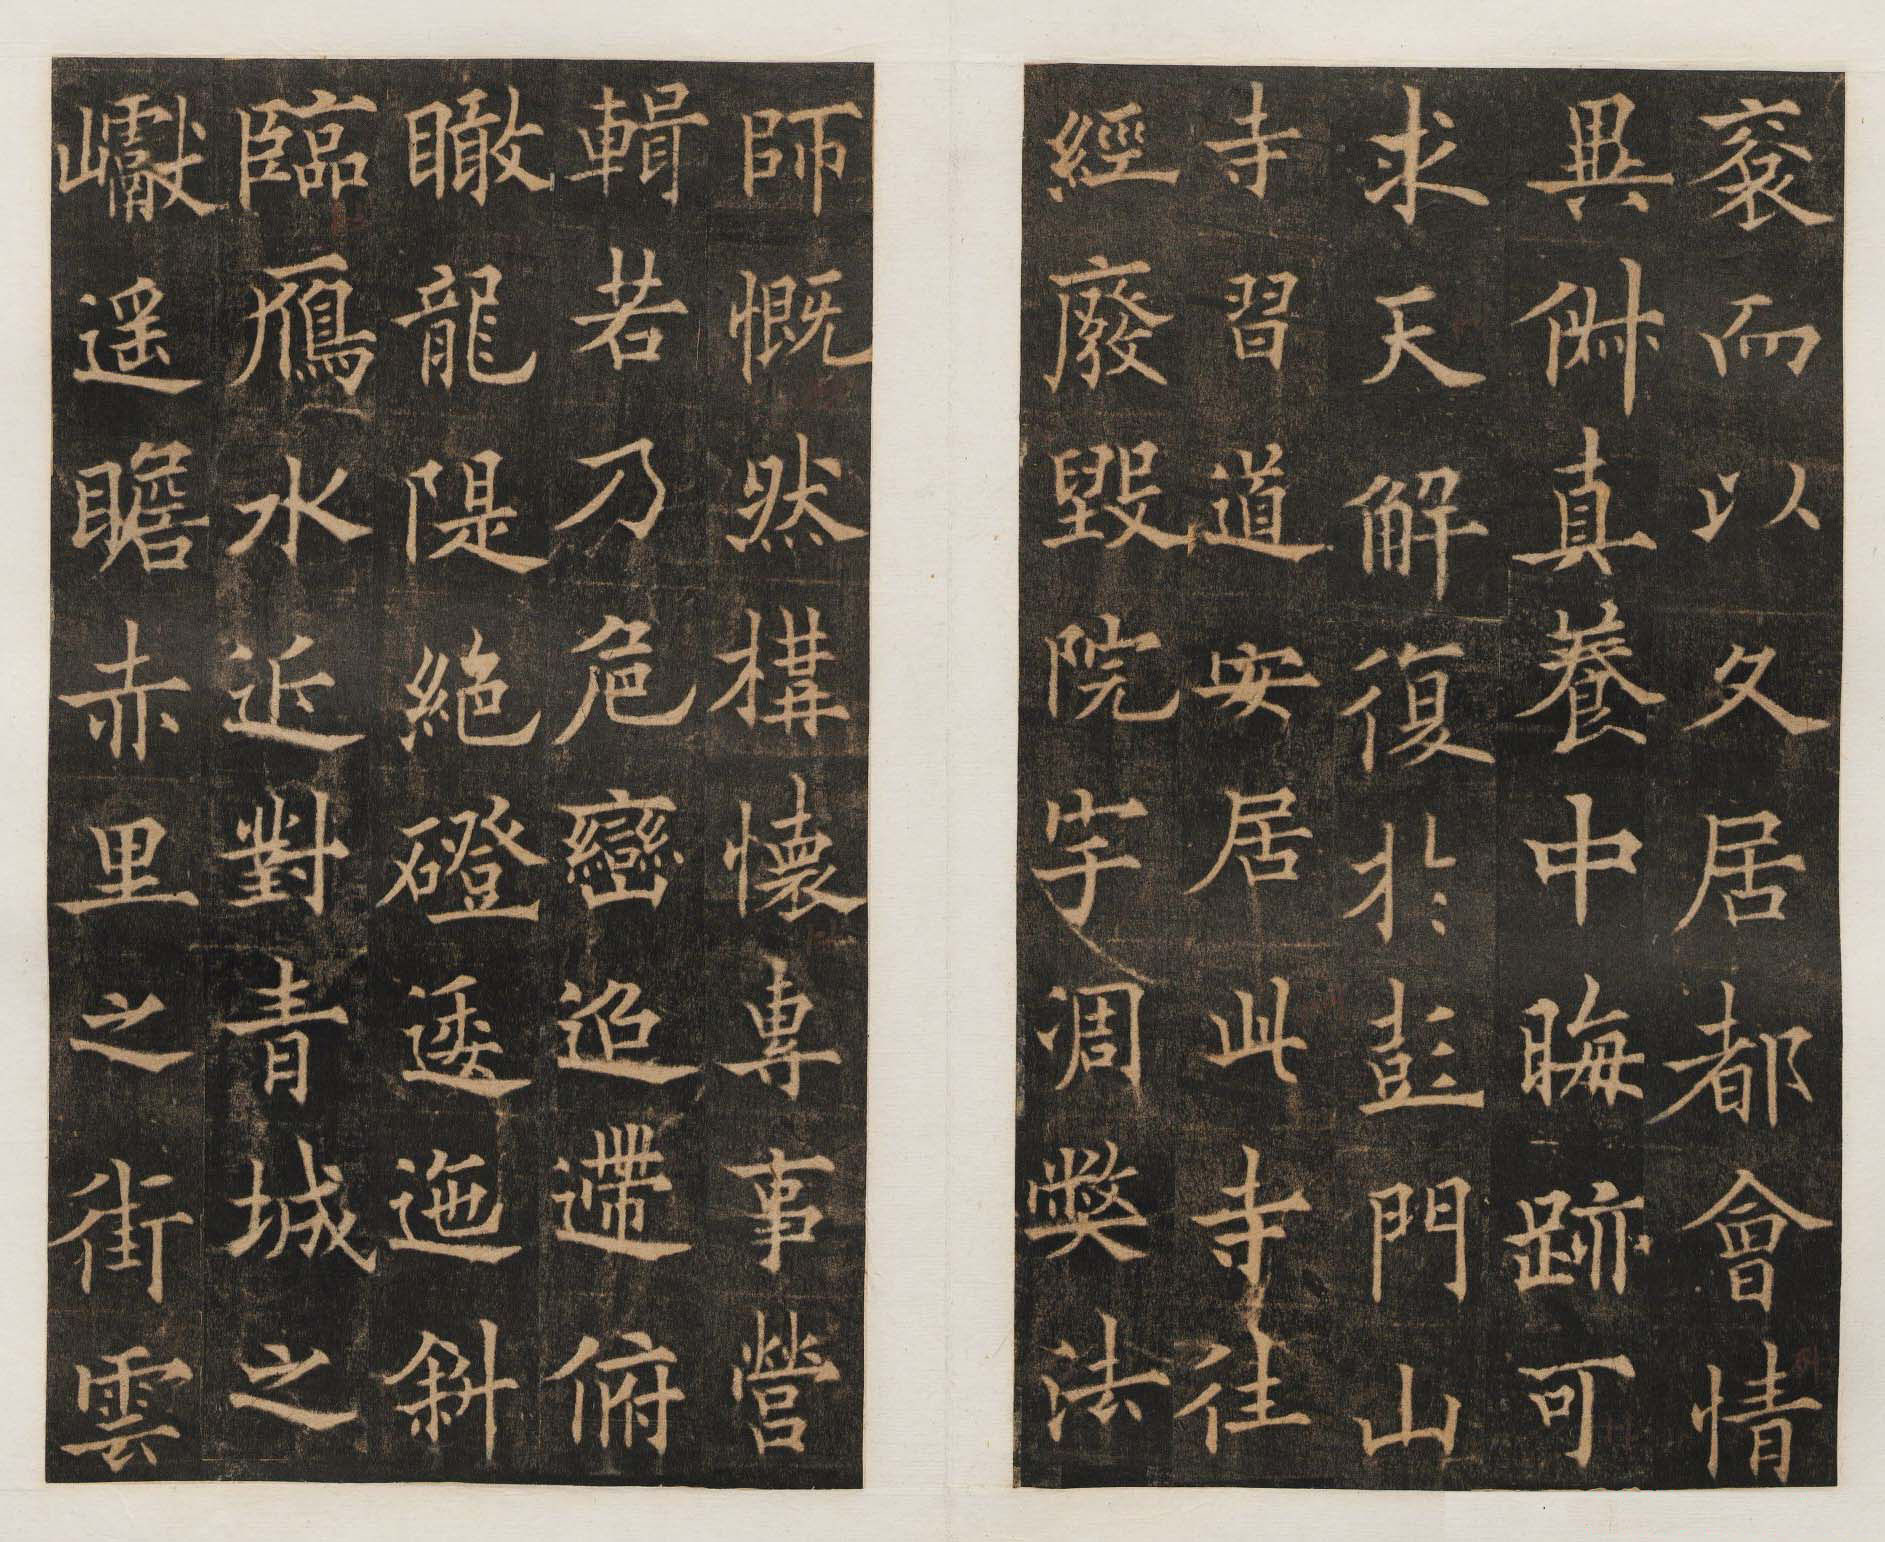 裒而以久居都會情
異倂真養中晦跡可
求天解復於彭門山
寺習道安居此寺往
經廢毀院宇凋獘法
師慨然搆懷專事營
輯若乃危巒迢遰俯
瞰龍隄絕磴逶迤斜
臨鴈水近對青城之
巘遥瞻赤里之街雲